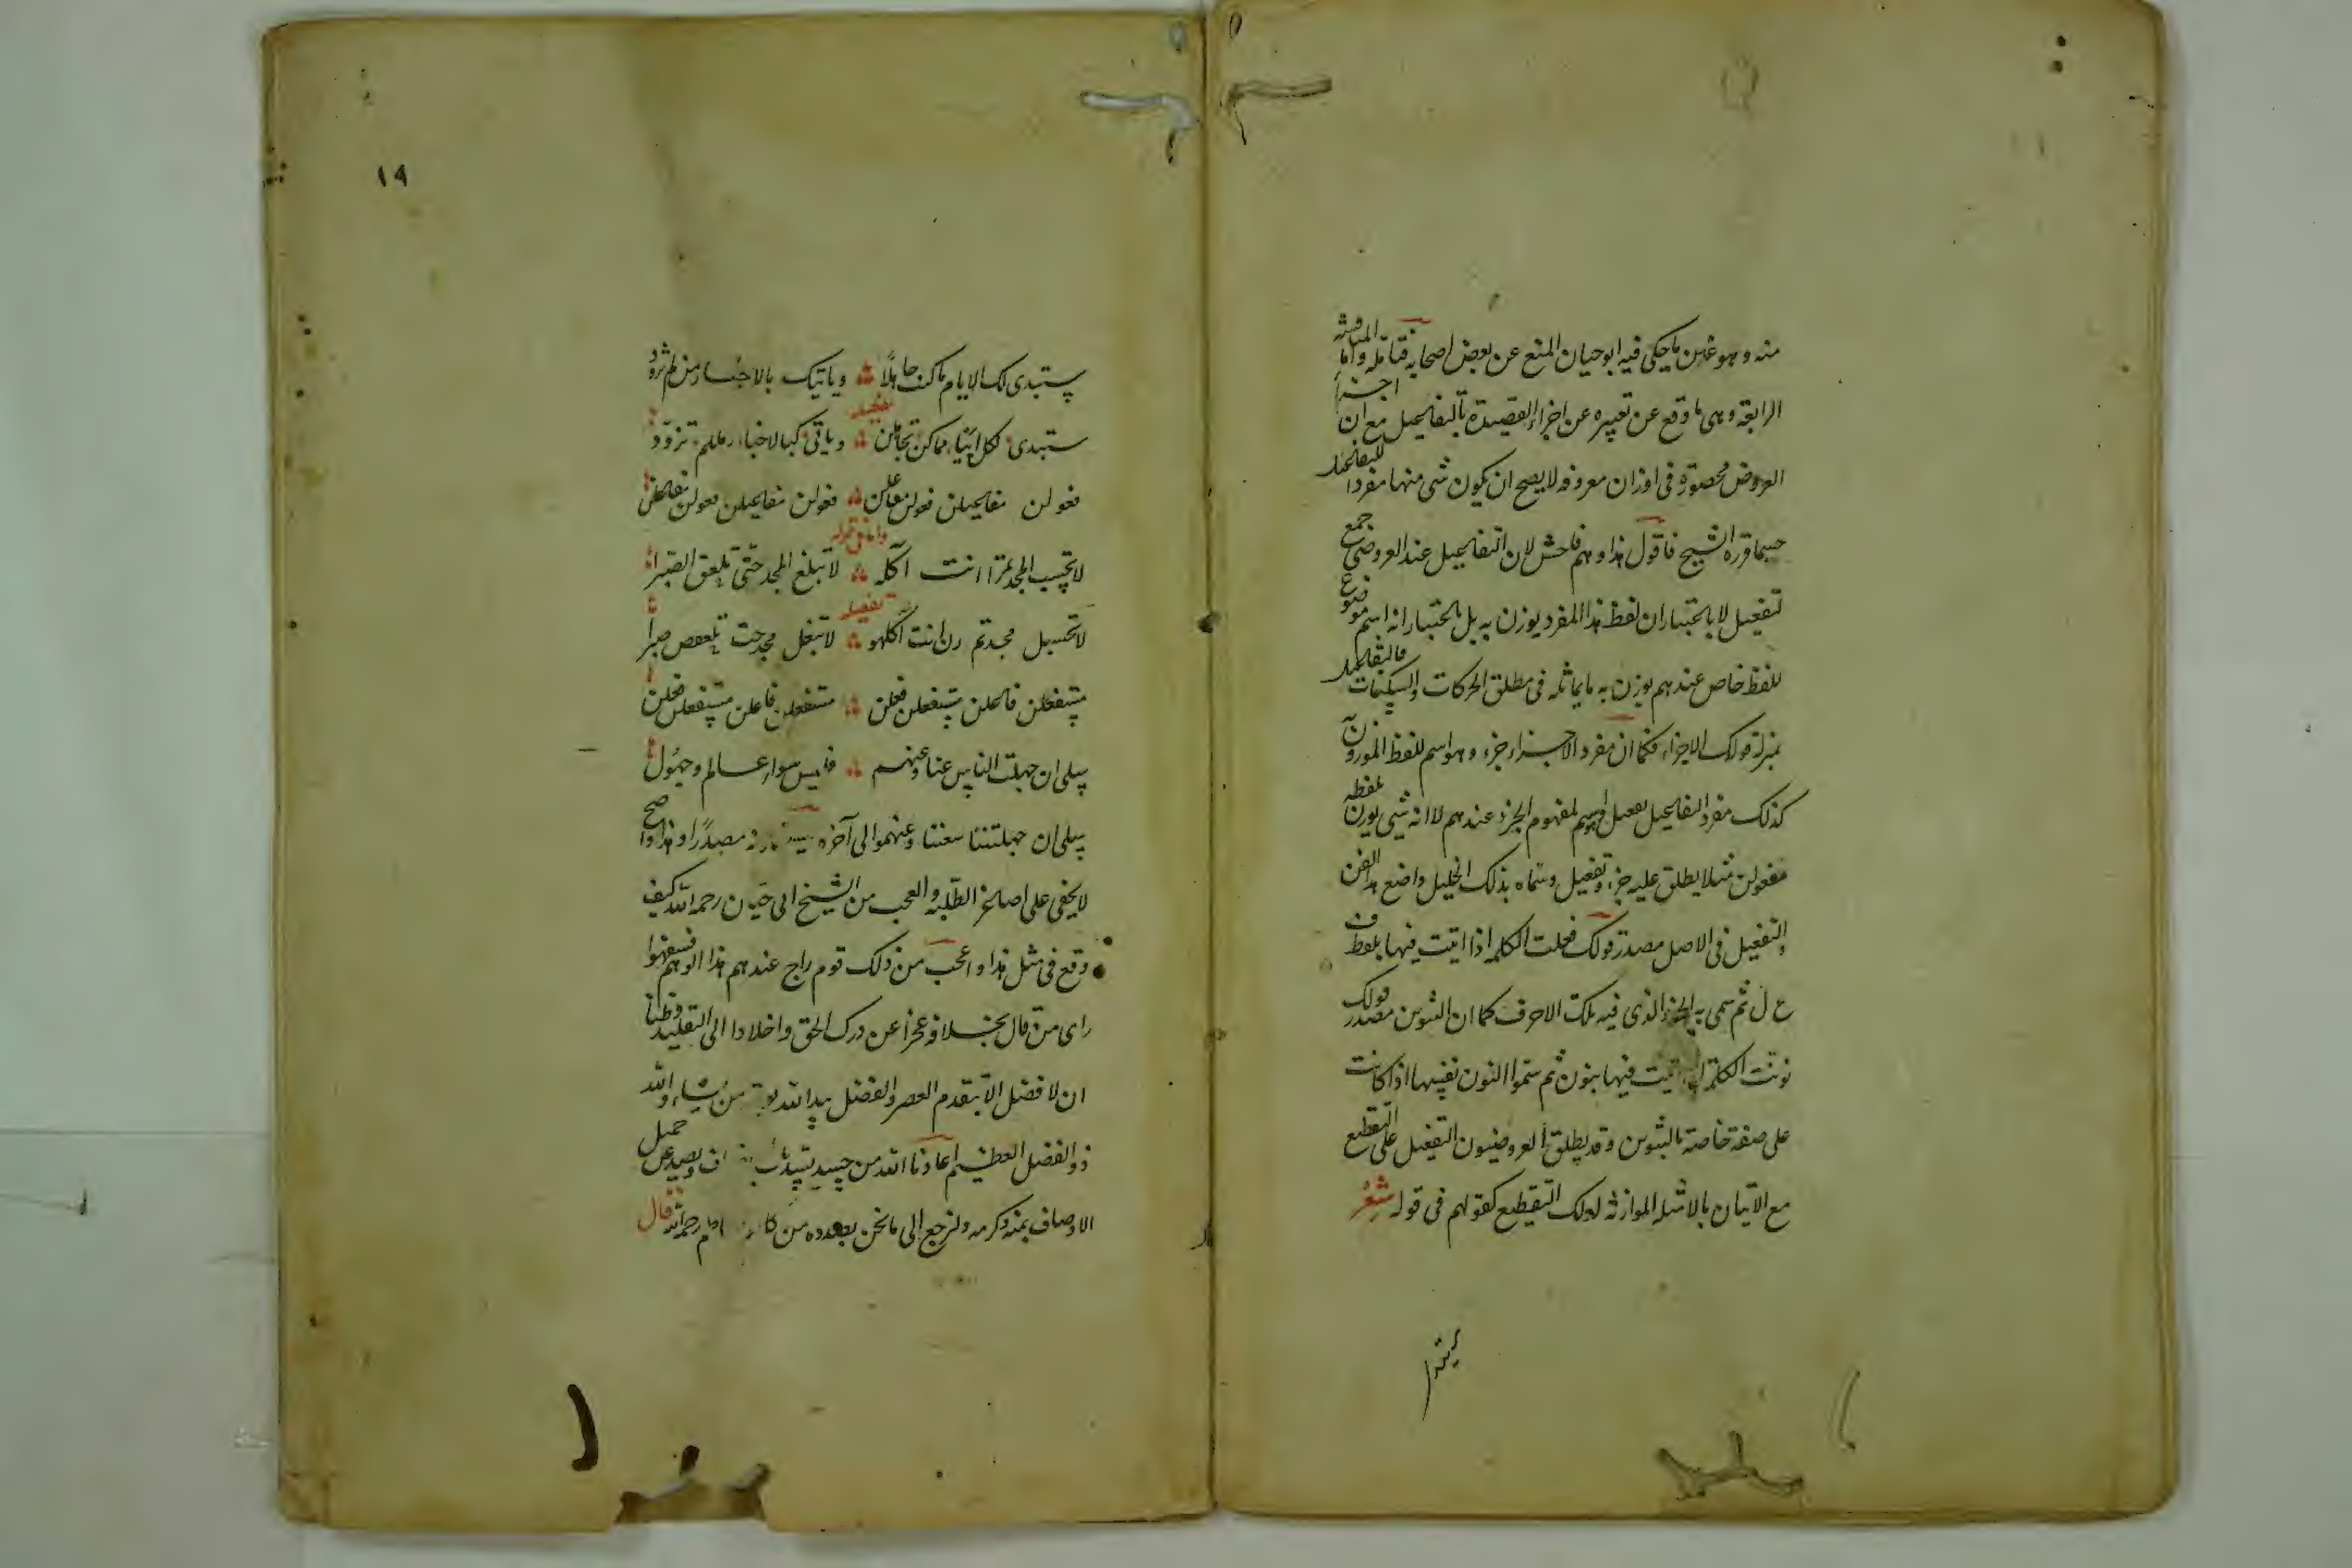 منه وهو غاين ما يحكى فيه ابو حيان المنع عن بعض اصحابه فتامله واما المناقشة
الرابعة وهى ما وقع عن تعبيره عن اجزاء القصيدة بالتفاعيل مع ان اجزاء
العروض محصورة فى اوزان معروفه لا يصح ان يكون شى منها مفردا للتفاعيل
حسبما قرره الشيخ فاقول هذا وهم فاحش لان التفاعيل عند العروضى جمع
تفعيل لا باعتبار ان لفظ هذا المفرد يوزن به بل باعتبار انه اسم موضوع
للفظ خاص عندهم يوزن به ما يماثله فى مطلق الحركات والسكنات فالتفاعيل
بمنزلة قولك الاجزاء فكما ان مفرد الاجزاء جزء وهو اسم للفظ الموزون
كذلك مفرد التفاعيل تفعيل وهو اسم لمفهوم الجزء عندهم لا انه شى يوزن بلفظه
مفعولن مثلا يطلق عليه جزء وتفعيل وسماه بذلك الخليل واضع هذا الفن
والتفعيل فى الاصل مصدر قولك فعلت الكلمه اذا اتيت فيها بلفظ ف
ع ل ثم سمى به الجزء الذى فيه تلك الاحرف كما ان التنوين مصدر قولك
نونت الكلمة اذا اتيت فيها بنون ثم سموا النون نفسها اذا كانت
على صفة خاصة بالتنوين وقد يطلق العروضيون التفعيل على التقطيع
مع الاتيان بالامثلة الموازنة لذلك التقطيع كقولهم فى قوله شعر
ستبدى
١٩
ستبدى لك الايام ما كنت جاهلا ويأتيك بالاخبار من لم تزود
تفعيله
ستبدى لكل ايّيا مما كن تجاهلن وياتى كبالاخبا رمللم تزوّد
فعولن مفاعيلن فعولن مفاعلن فعولن مفاعيلن فعولن مفاعلن
واما فى قوله
لا تحسب المجد تمرا انت آكله لا تبلغ المجد حتى تلعق الصبرا
تفعيله
لا تحسبل مجدتم رن انت آكلهو لا تبغل مجدحت تلعقص صبرا
مستفعلن فاعلن مستفعلن فعلن مستفعلن فاعلن مستفعلن فعلن
سلى ان جهلت الناس عنا وعنهم فليس سواء عالم وجهول
سلى ان جهلتننا سعننا وعنهمو الى آخره مصدرا وهذا واضح
لا يخفى على اصاغر الطلبه والعجب من الشيخ ابى حيان رحمه الله كيف
وقع فى مثل هذا واعجب من ذلك قوم راج عندهم هذا الوهم فسفهوا
راى من قال بخلافه عجزا عن درك الحق واخلادا الى التقليد وظنا
ان لا فضل الا بتقدم العصر والفضل بيد الله يؤتيه من يشاء والله
ذو الفضل العظيم اعاذنا الله من حسد يسد باب الانصاف ويصد عن جميل
الاوصاف بمنه وكرمه ولنرجع الى ما نحن بصدده من كلام رحمه الله قال